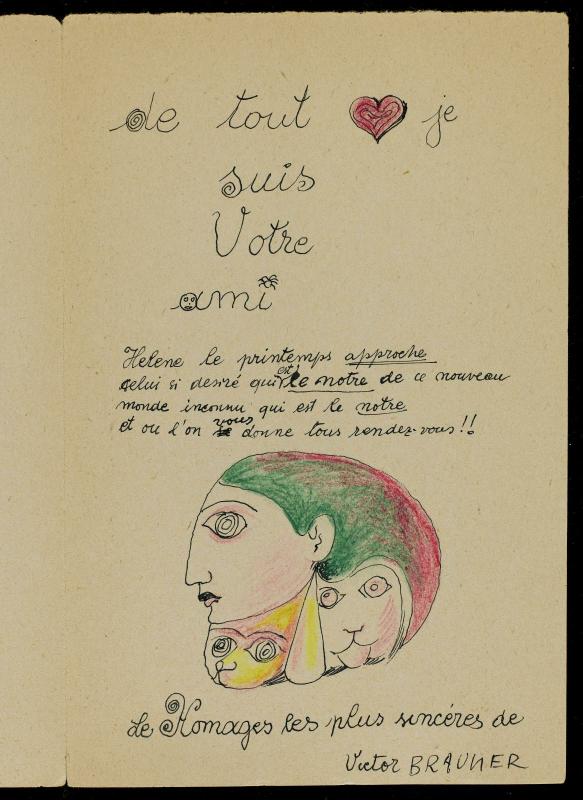 de tout je
suis
Votre
ami
Helene le printemps approche
celui si desiré qui est le notre de ce nouveau
monde inconnu qui est le notre
et ou l'on vous donne tous rendez-vous!!
Le Homages les plus sincéres de
Victor BRAUNER